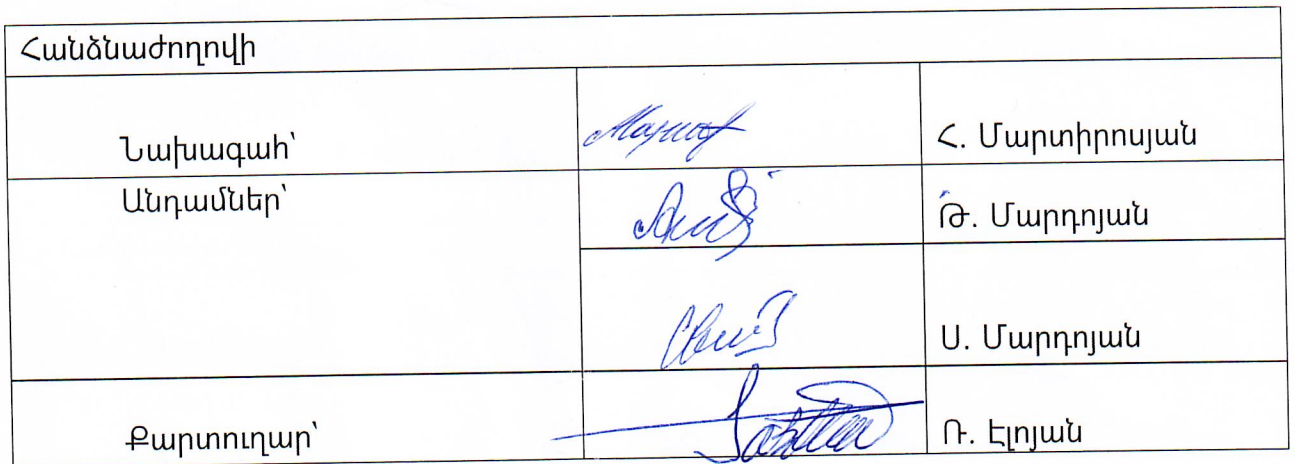 Հանձնաժողովի
Նախագահ՝ Հ. Մարտիրոսյան
Անդամներ՝ Թ. Մարդոյան
Ս. Մարդոյան
Քարտուղար՝ Ռ. Էլոյան